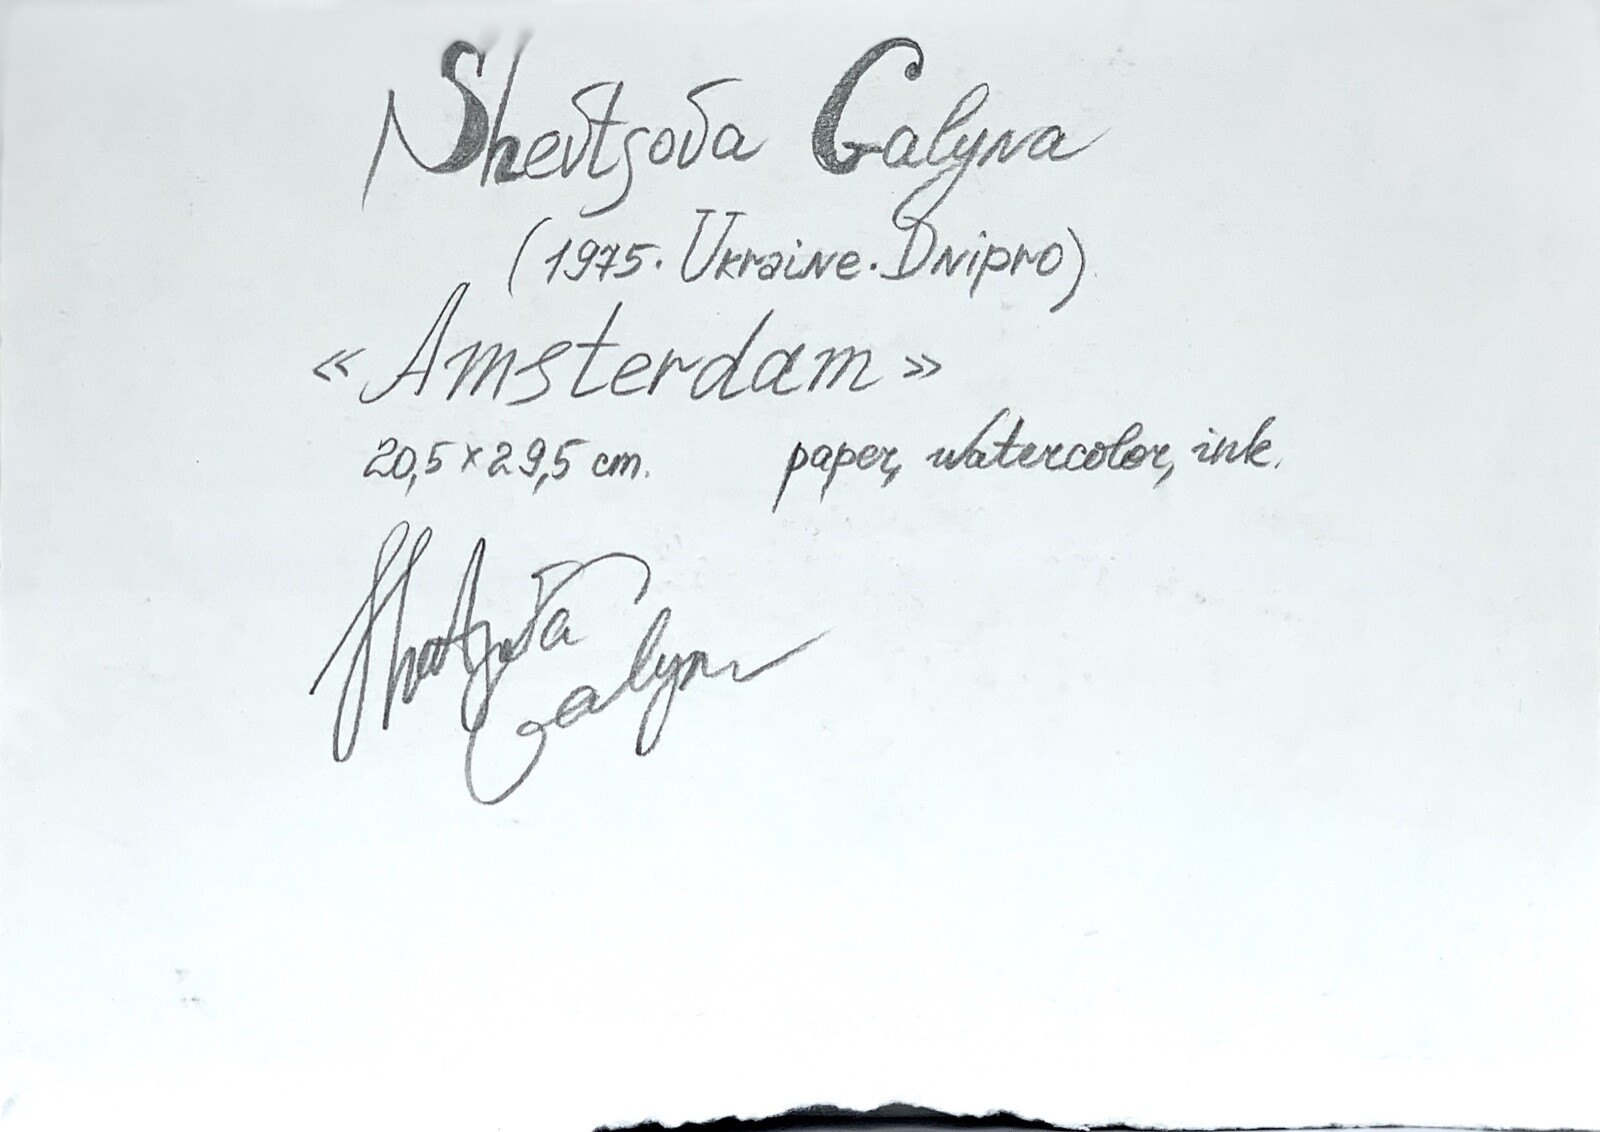 Shevtsova Galyna
(1975. Ukraine. Dnipro)
« Amsterdam »
20,5 × 29,5 cm. paper, watercolor, ink.
Shevtsova
Galyna